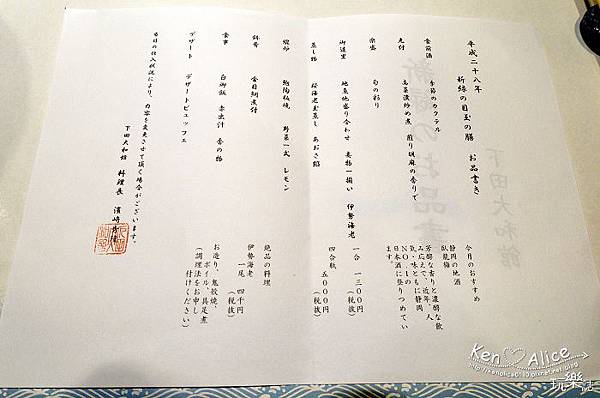 平成二十八年
新緑の目玉の膳 お品書き
食前酒 季節のカクテル
先付 高菜漬炒め煮 煎り胡麻の香りで
楽盛 旬の彩り
御造里 地魚他盛り合わせ 妻物一揃い 伊勢海老
蒸し物 桜海老玉蒸し あおさ餡
焜炉 鮑陶板焼 野菜一式 レモン
鉢肴 金目鯛煮付
食事 白御飯 赤出汁 香の物
デザート デザートビュッフェ
当日の仕入状況により、内容を変更させて頂く場合がございます。
下田大和館 料理長 濱崎
今月のおすすめ
静岡の地酒
臥龍梅
芳醇な香りと濃醇な飲
み応えで、近年、人
気・味ともに静岡
NO.1の
日本酒に登りつめてい
ます。
一合 一三〇〇円
(税抜)
四合瓶
五〇〇〇円
(税抜)
絶品の料理
伊勢海老
一尾 四千円
(税抜)
お造り、鬼殻焼、
ボイル、具足煮
(調理法をお申し
付けください)
下田大和館
お品書
Ken Alice
http://kenalice0113.pixnet.net/blog
玩樂誌